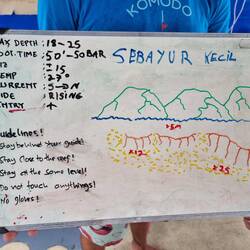 KOMODO
AX DEPTH : 18-25
OT. TIME : 50'-50 BAR
SEBAYUR KECIL
IZ : ± 15
EMP : 27°
URRENT : S→N
IDE : RISING
ENTRY : ↑
>5M
uidelines!
Stay behind your guide!
Stay close to the reef!
Stay on the same level!
Do not touch anythings!
No gloves!
±12
±25